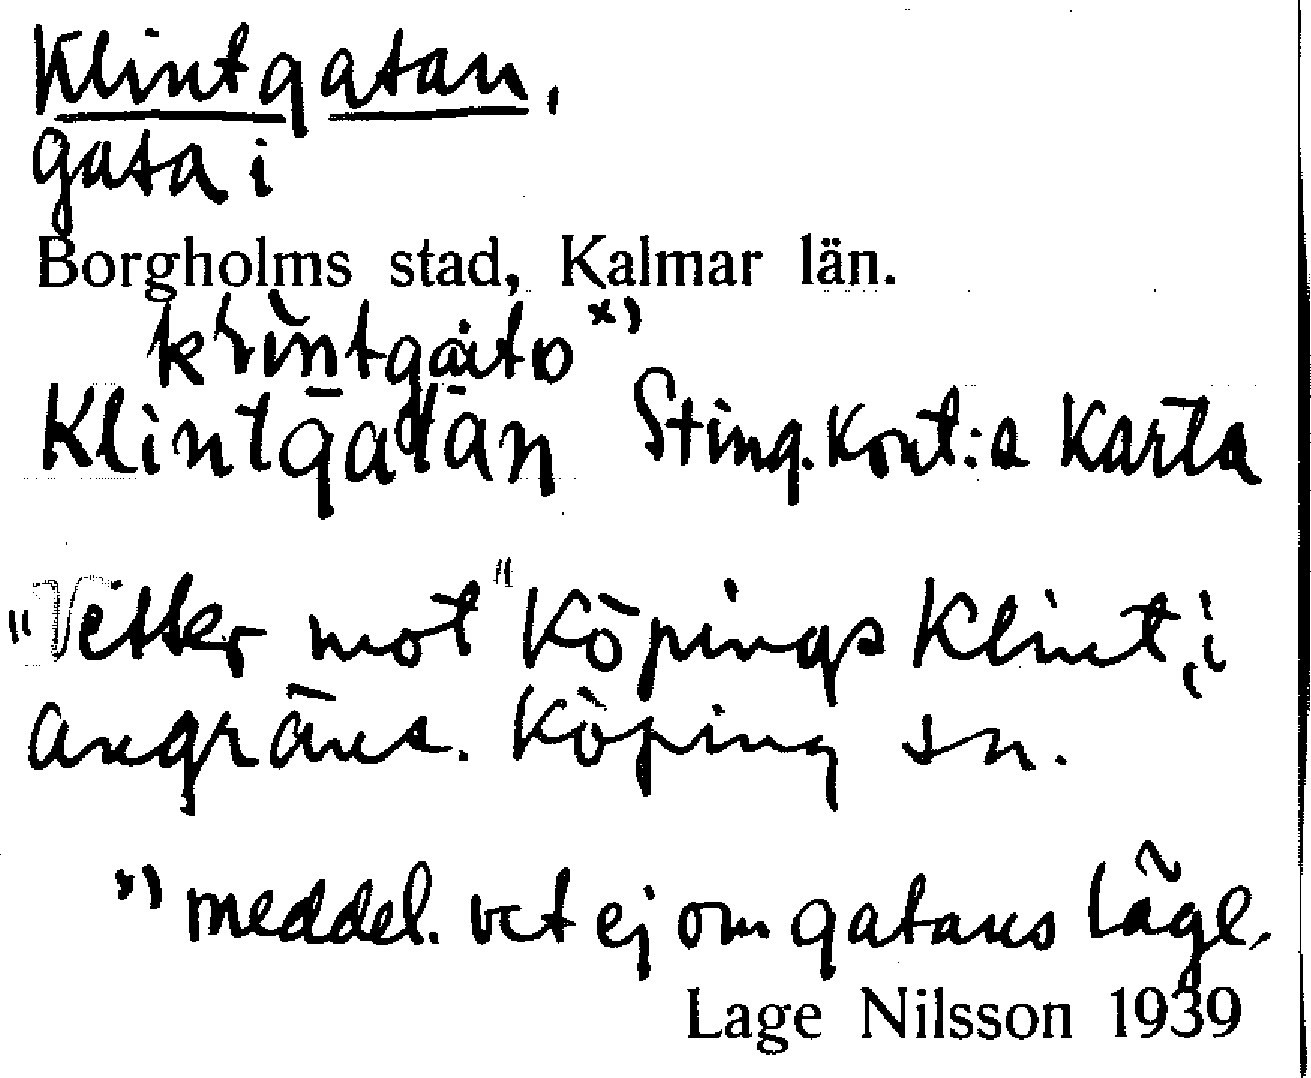 Klintgatan,
gata i
Borgholms stad, Kalmar län.
Klintgatan Sting. Kont:s Karta
"Vetter mot" Köpings Klint, i
angräns. Köping sn.
x) meddel. vet ej om gatans läge.
Lage Nilsson 1939